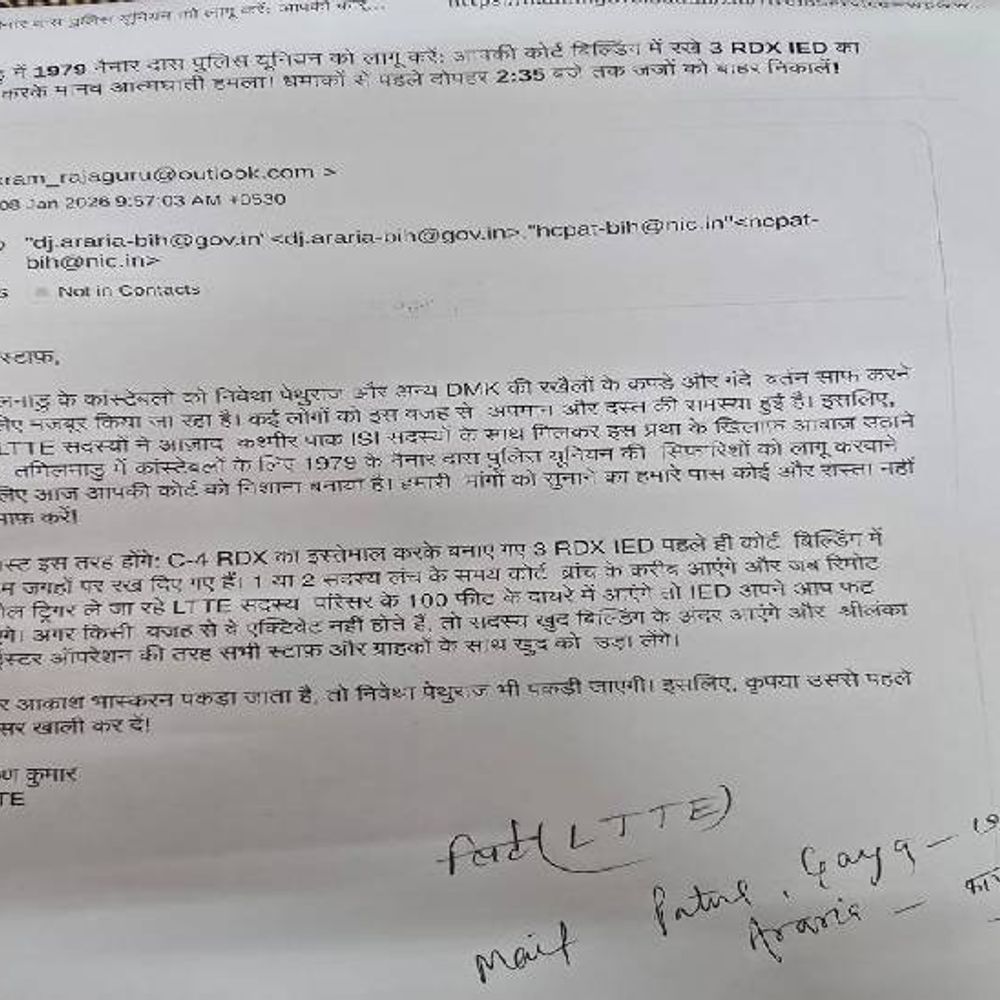 में 1979 नैनार दास पुलिस यूनियन को लागू करें: आपकी कोर्ट बिल्डिंग में रखे 3 RDX IED का
करके मानव आत्मघाती हमला! धमाकों से पहले दोपहर 2:35 बजे तक जजों को बाहर निकालें!
ram_rajaguru@outlook.com >
08 Jan 2026 9:57:03 AM +0530
"dj.araria-bih@gov.in" <dj.araria-bih@gov.in>,"hcpat-bih@nic.in"<hcpat-
bih@nic.in>
Not in Contacts
स्टाफ़,
के कांस्टेबलों को निवेथा पेथुराज और अन्य DMK की रखैलों के कपड़े और गंदे बर्तन साफ करने
मजबूर किया जा रहा है। कई लोगों को इस वजह से अपमान और दस्त की समस्या हुई है। इसलिए,
LTTE सदस्यों ने आज़ाद कश्मीर पाक ISI सदस्यों के साथ मिलकर इस प्रथा के खिलाफ आवाज़ उठाने
तमिलनाडु में कांस्टेबलों के लिए 1979 के नैनार दास पुलिस यूनियन की सिफारिशों को लागू करवाने
लिए आज आपकी कोर्ट को निशाना बनाया है। हमारी मांगों को सुनाने का हमारे पास कोई और रास्ता नहीं
माफ़ करें!
इस तरह होंगे: C-4 RDX का इस्तेमाल करके बनाए गए 3 RDX IED पहले ही कोर्ट बिल्डिंग में
जगहों पर रख दिए गए हैं। 1 या 2 सदस्य लंच के समय कोर्ट ब्रांच के करीब आएंगे और जब रिमोट
ट्रिगर ले जा रहे LTTE सदस्य परिसर के 100 फीट के दायरे में आएंगे तो IED अपने आप फट
अगर किसी वजह से वे एक्टिवेट नहीं होते हैं, तो सदस्य खुद बिल्डिंग के अंदर आएंगे और श्रीलंका
ईस्टर ऑपरेशन की तरह सभी स्टाफ़ और ग्राहकों के साथ खुद को उड़ा लेंगे।
आकाश भास्करन पकड़ा जाता है, तो निवेथा पेथुराज भी पकड़ी जाएगी। इसलिए, कृपया उससे पहले
खाली कर दें!
कुमार
TE
लिट्टे (LTTE)
Mail Patna, Gaya –
Araria –